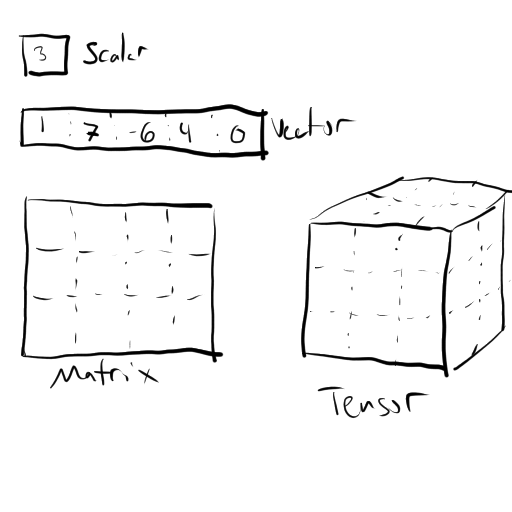 3 Scalar
1 7 -6 4 0 Vector
Matrix
Tensor